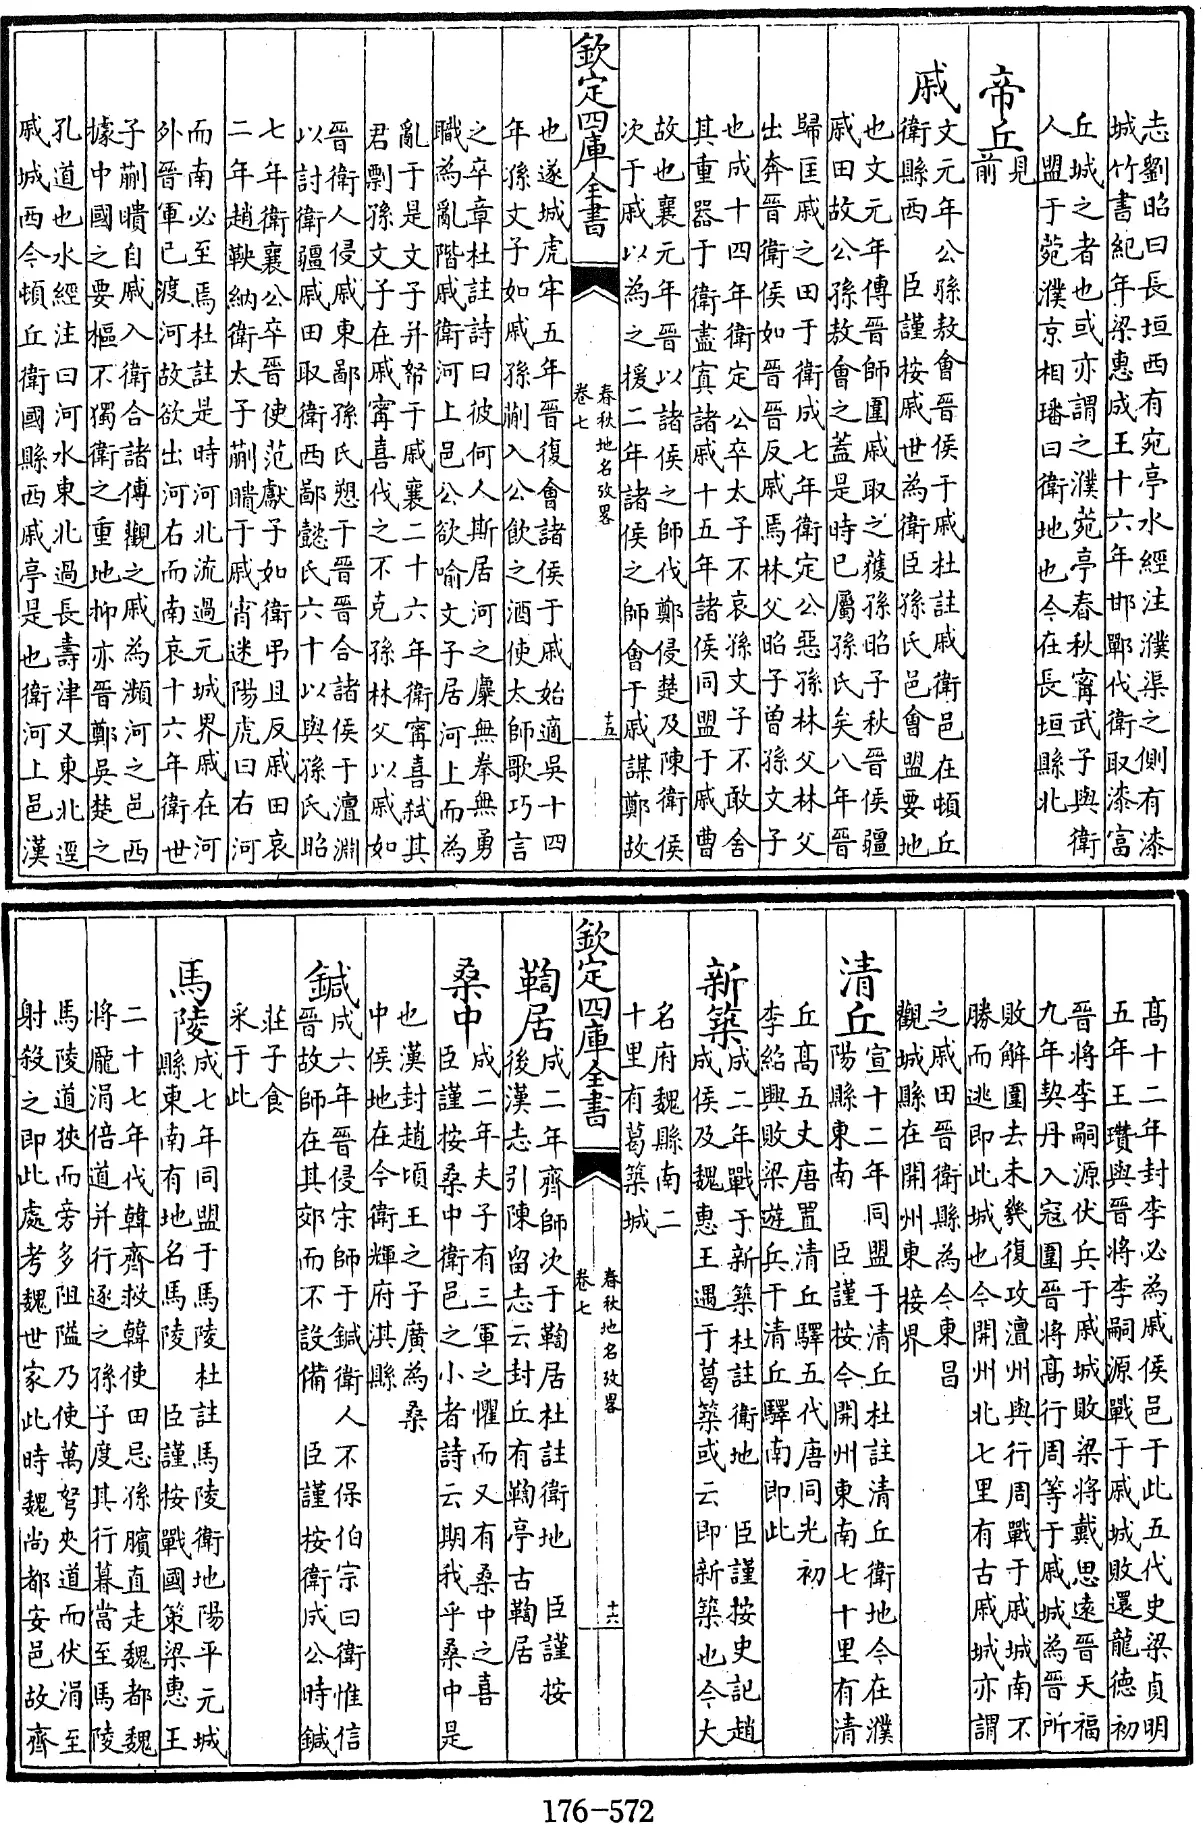 志劉昭曰長垣西有宛亭水經注濮渠之側有漆
城竹書紀年梁惠成王十六年邯鄲伐衛取漆富
丘城之者也或亦謂之濮菀亭春秋甯武子與衛
人盟于菀濮京相璠曰衛地也今在長垣縣北
帝丘見前
戚文元年公孫敖會晉侯于戚杜註戚衛邑在頓丘
衛縣西 臣謹按戚世為衛臣孫氏邑會盟要地
也文元年傳晉師圍戚取之獲孫昭子秋晉侯疆
戚田故公孫敖會之蓋是時已屬孫氏矣八年晉
歸匡戚之田于衛成七年衛定公惡孫林父林父
出奔晉衛侯如晉晉反戚焉林父昭子曾孫文子
也成十四年衛定公卒太子不哀孫文子不敢舍
其重器于衛盡寘諸戚十五年諸侯同盟于戚曹
故也襄元年晉以諸侯之師伐鄭侵楚及陳衛侯
次于戚以為之援二年諸侯之師會于戚謀鄭故
欽定四庫全書
春秋地名攷畧
卷七
十五
也遂城虎牢五年晉復會諸侯于戚始適吳十四
年孫文子如戚孫蒯入公飲之酒使太師歌巧言
之卒章杜註詩曰彼何人斯居河之麋無拳無勇
職為亂階戚衛河上邑公欲喻文子居河上而為
亂于是文子并帑于戚襄二十六年衛甯喜弒其
君剽孫文子在戚甯喜伐之不克孫林父以戚如
晉衛人侵戚東鄙孫氏愬于晉晉合諸侯于澶淵
以討衛疆戚田取衛西鄙懿氏六十以與孫氏昭
七年衛襄公卒晉使范獻子如衛弔且反戚田哀
二年趙鞅納衛太子蒯聵于戚宵迷陽虎曰右河
而南必至焉杜註是時河北流過元城界戚在河
外晉軍已渡河故欲出河右而南哀十六年衛世
子蒯聵自戚入衛合諸傳觀之戚為瀕河之邑西
據中國之要樞不獨衛之重地抑亦晉鄭吳楚之
孔道也水經注曰河水東北過長壽津又東北逕
戚城西今頓丘衛國縣西戚亭是也衛河上邑漢
高十二年封李必為戚侯邑于此五代史梁貞明
五年王瓚與晉將李嗣源戰于戚城敗還龍德初
晉將李嗣源伏兵于戚城敗梁將戴思遠晉天福
九年契丹入寇圍晉將高行周等于戚城為晉所
敗解圍去未幾復攻澶州與行周戰于戚城南不
勝而逃即此城也今開州北七里有古戚城亦謂
之戚田晉衛縣為今東昌
觀城縣在開州東接界
清丘宣十二年同盟于清丘杜註清丘衛地今在濮
陽縣東南 臣謹按今開州東南七十里有清
丘高五丈唐置清丘驛五代唐同光初
李紹興敗梁遊兵于清丘驛南即此
新築成二年戰于新築杜註衛地 臣謹按史記趙
成侯及魏惠王遇于葛築或云即新築也今大
名府魏縣南二
十里有葛築城
欽定四庫全書
春秋地名攷畧
卷七
十六
鞫居成二年齊師次于鞫居杜註衛地 臣謹按
後漢志引陳留志云封丘有鞫亭古鞫居
桑中成二年夫子有三軍之懼而又有桑中之喜
臣謹按桑中衛邑之小者詩云期我乎桑中是
也漢封趙頃王之子廣為桑
中侯地在今衛輝府淇縣
鍼成六年晉侵宗師于鍼衛人不保伯宗曰衛惟信
晉故師在其郊而不設備 臣謹按衛成公時鍼
莊子食
采于此
馬陵成七年同盟于馬陵杜註馬陵衛地陽平元城
縣東南有地名馬陵 臣謹按戰國策梁惠王
二十七年伐韓齊救韓使田忌孫臏直走魏都魏
將龐涓倍道并行逐之孫子度其行暮當至馬陵
馬陵道狹而旁多阻隘乃使萬弩夾道而伏涓至
射殺之即此處考魏世家此時魏尚都安邑故齊
176-572